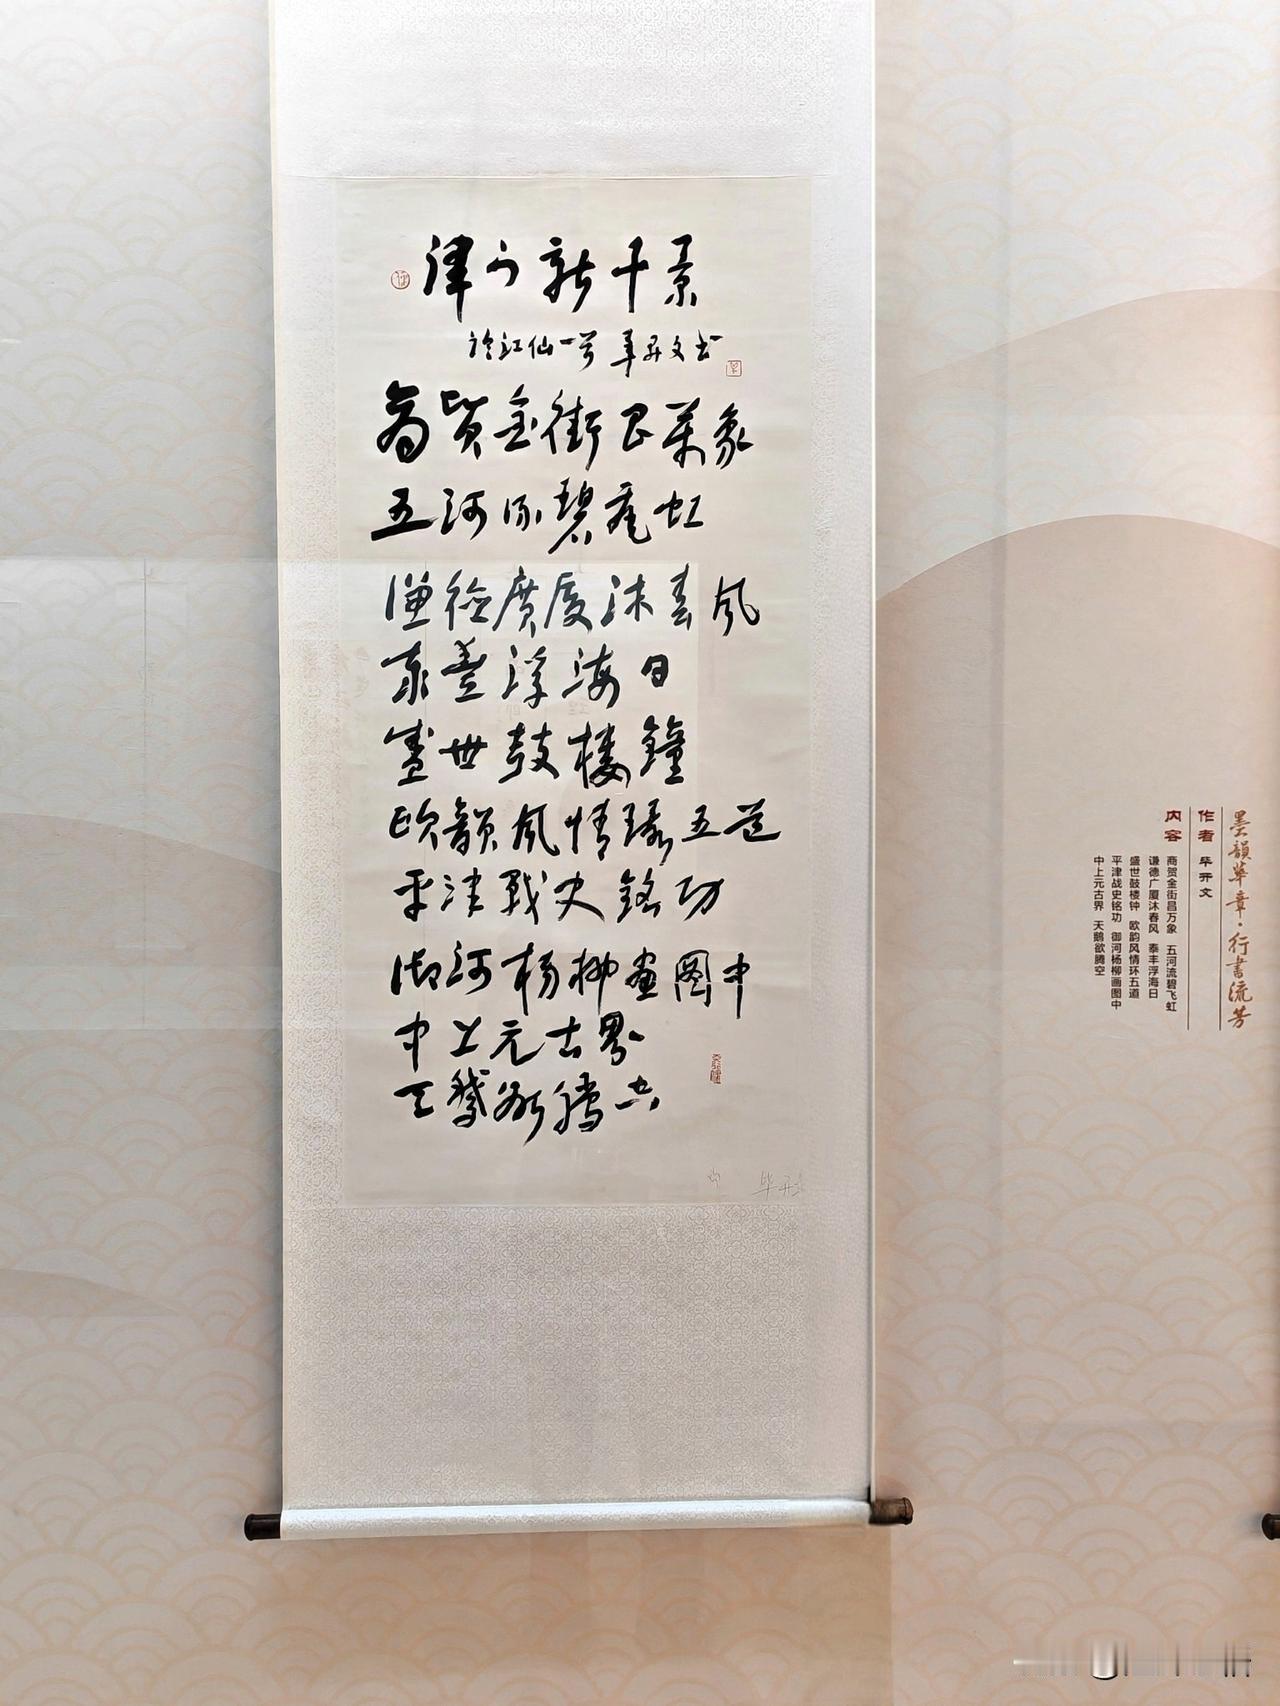 津门新十景
临江仙一首 毕开文书
商贸金街昌萬象
五河流碧飛虹
谦德廣厦沐春風
泰豐浮海日
盛世鼓樓鐘
欧韻風情環五道
平津戰史銘功
御河楊柳画圖中
中上元古界
天鵝欲騰空
毕开文
墨韻華章·行書流芳
作者 毕开文
内容 商贺金街昌万象 五河流碧飞虹
谦德广厦沐春风 泰丰浮海日
盛世鼓楼钟 欧韵风情环五道
平津战史铭功 御河杨柳画图中
中上元古界 天鹅欲腾空